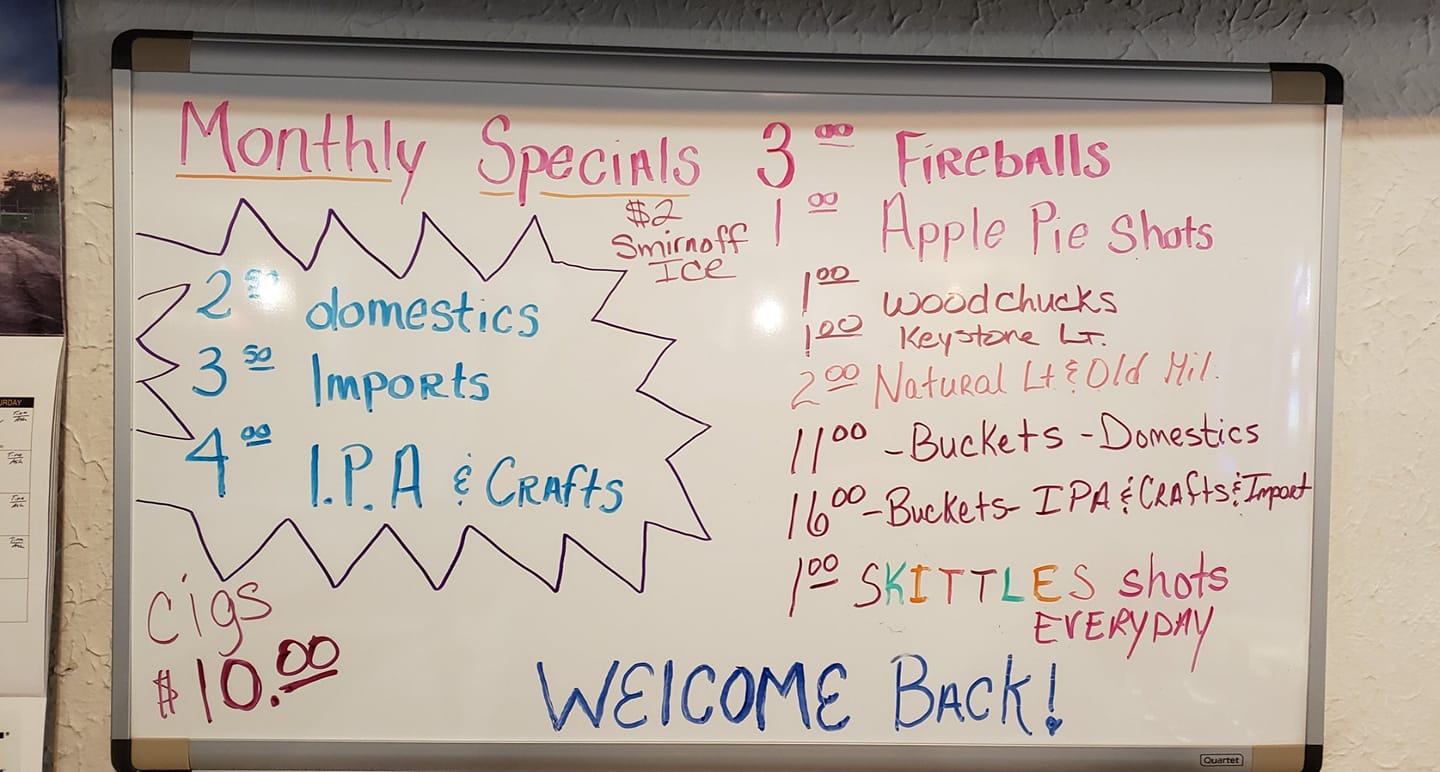 Monthly Specials
$2
Smirnoff
Ice
2 50 domestics
3 50 Imports
4 00 I.P.A & Crafts
cigs
$10.00
3 00 Fireballs
1 00 Apple Pie Shots
1 00 Woodchucks
1 00 Keystone Lt.
2 00 Natural Lt & Old Mil.
11 00 -Buckets -Domestics
16 00 -Buckets- IPA & Crafts & Import
1 00 SKITTLES shots
EVERYDAY
WELCOME BACK!
Quartet